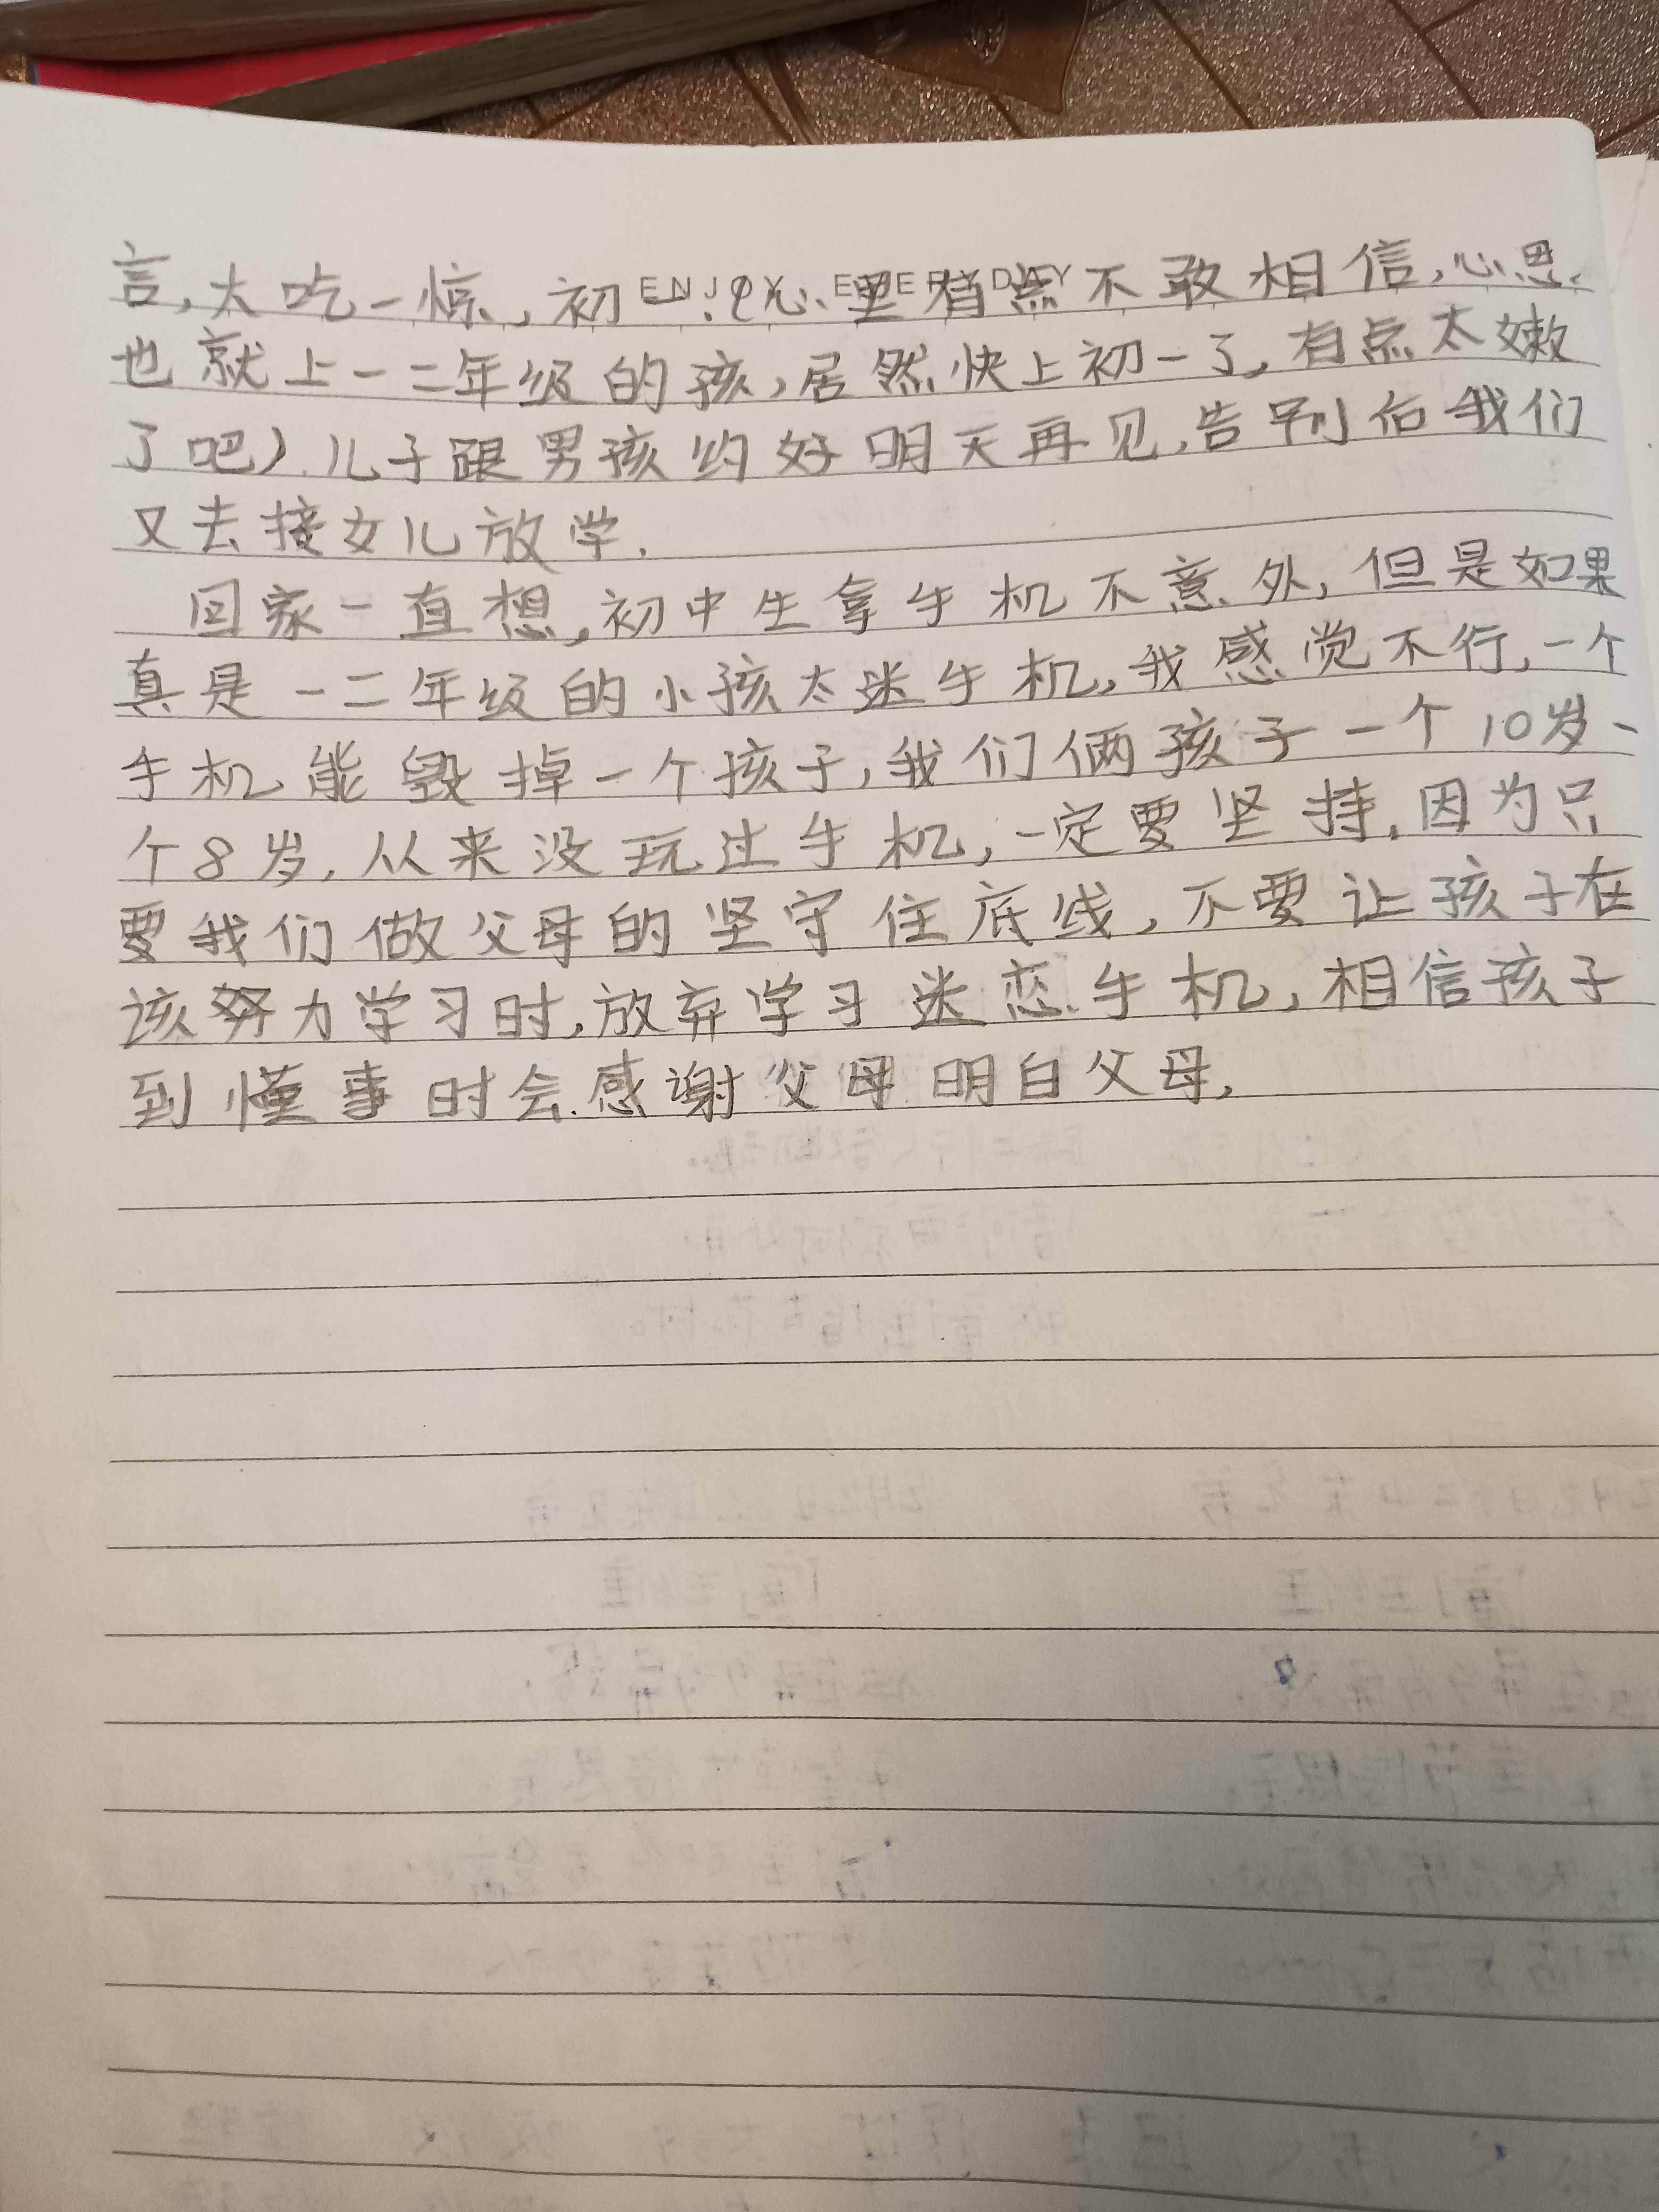 ENJOY EVERYDAY
言,太吃一惊,初一.(心里有点不敢相信,心思.
也就上一二年级的孩,居然快上初一了,有点太嫩
了吧).儿子跟男孩约好明天再见,告别后我们
又去接女儿放学.
回家一直想,初中生拿手机不意外,但是如果
真是一二年级的小孩太迷手机,我感觉不行,一个
手机能毁掉一个孩子,我们俩孩子一个10岁、
个8岁,从来没玩过手机,一定要坚持,因为只
要我们做父母的坚守住底线,不要让孩子在
该努力学习时,放弃学习迷恋手机,相信孩子
到懂事时会感谢父母明白父母,